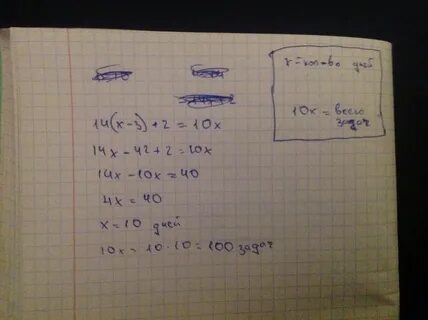 x-кол-во дней
10x = всего
задач
14(x-3)+2=10x
14x-42+2=10x
14x-10x=40
4x=40
x=10 дней
10x=10·10=100 задач